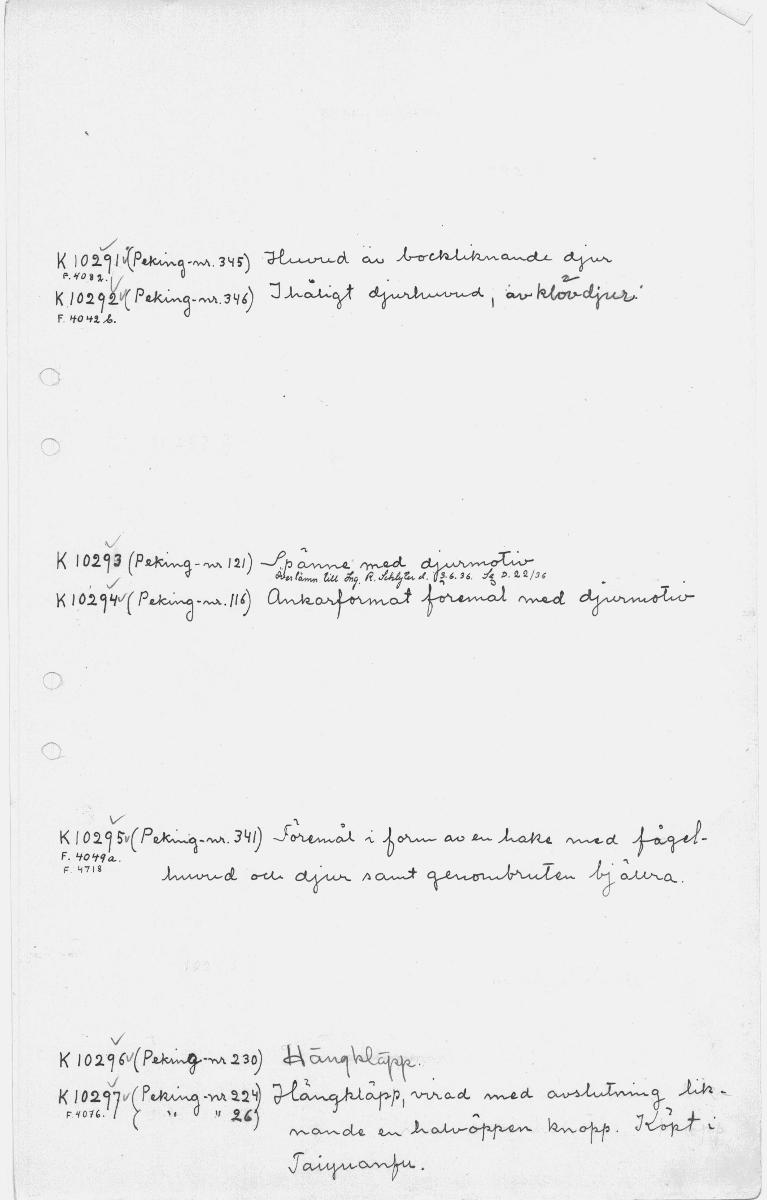 K 10291 (Peking-nr. 345) Huvud av bockliknande djur
F. 4082.
K 10292 (Peking-nr. 346) Ihåligt djurhuvud, av klövdjur?
F. 4042 b.
K 10293 (Peking-nr 121) Spänne med djurmotiv
Överlämn till Ing. R. Schlyter d. 6.36. D. 22/36
K 10294 (Peking-nr. 116) Ankarformat föremål med djurmotiv
K 10295 (Peking-nr. 341) Föremål i form av en hake med fågel-
F. 4049a.
F. 4718
huvud och djur samt genombruten bjällra.
K 10296 (Peking-nr 230) Hängkläpp.
K 10297 (Peking-nr 224) Hängkläpp, virad med avslutning lik-
F. 4076. ( " " 26)
nande en halvöppen knopp. Köpt i
Taiyuanfu.